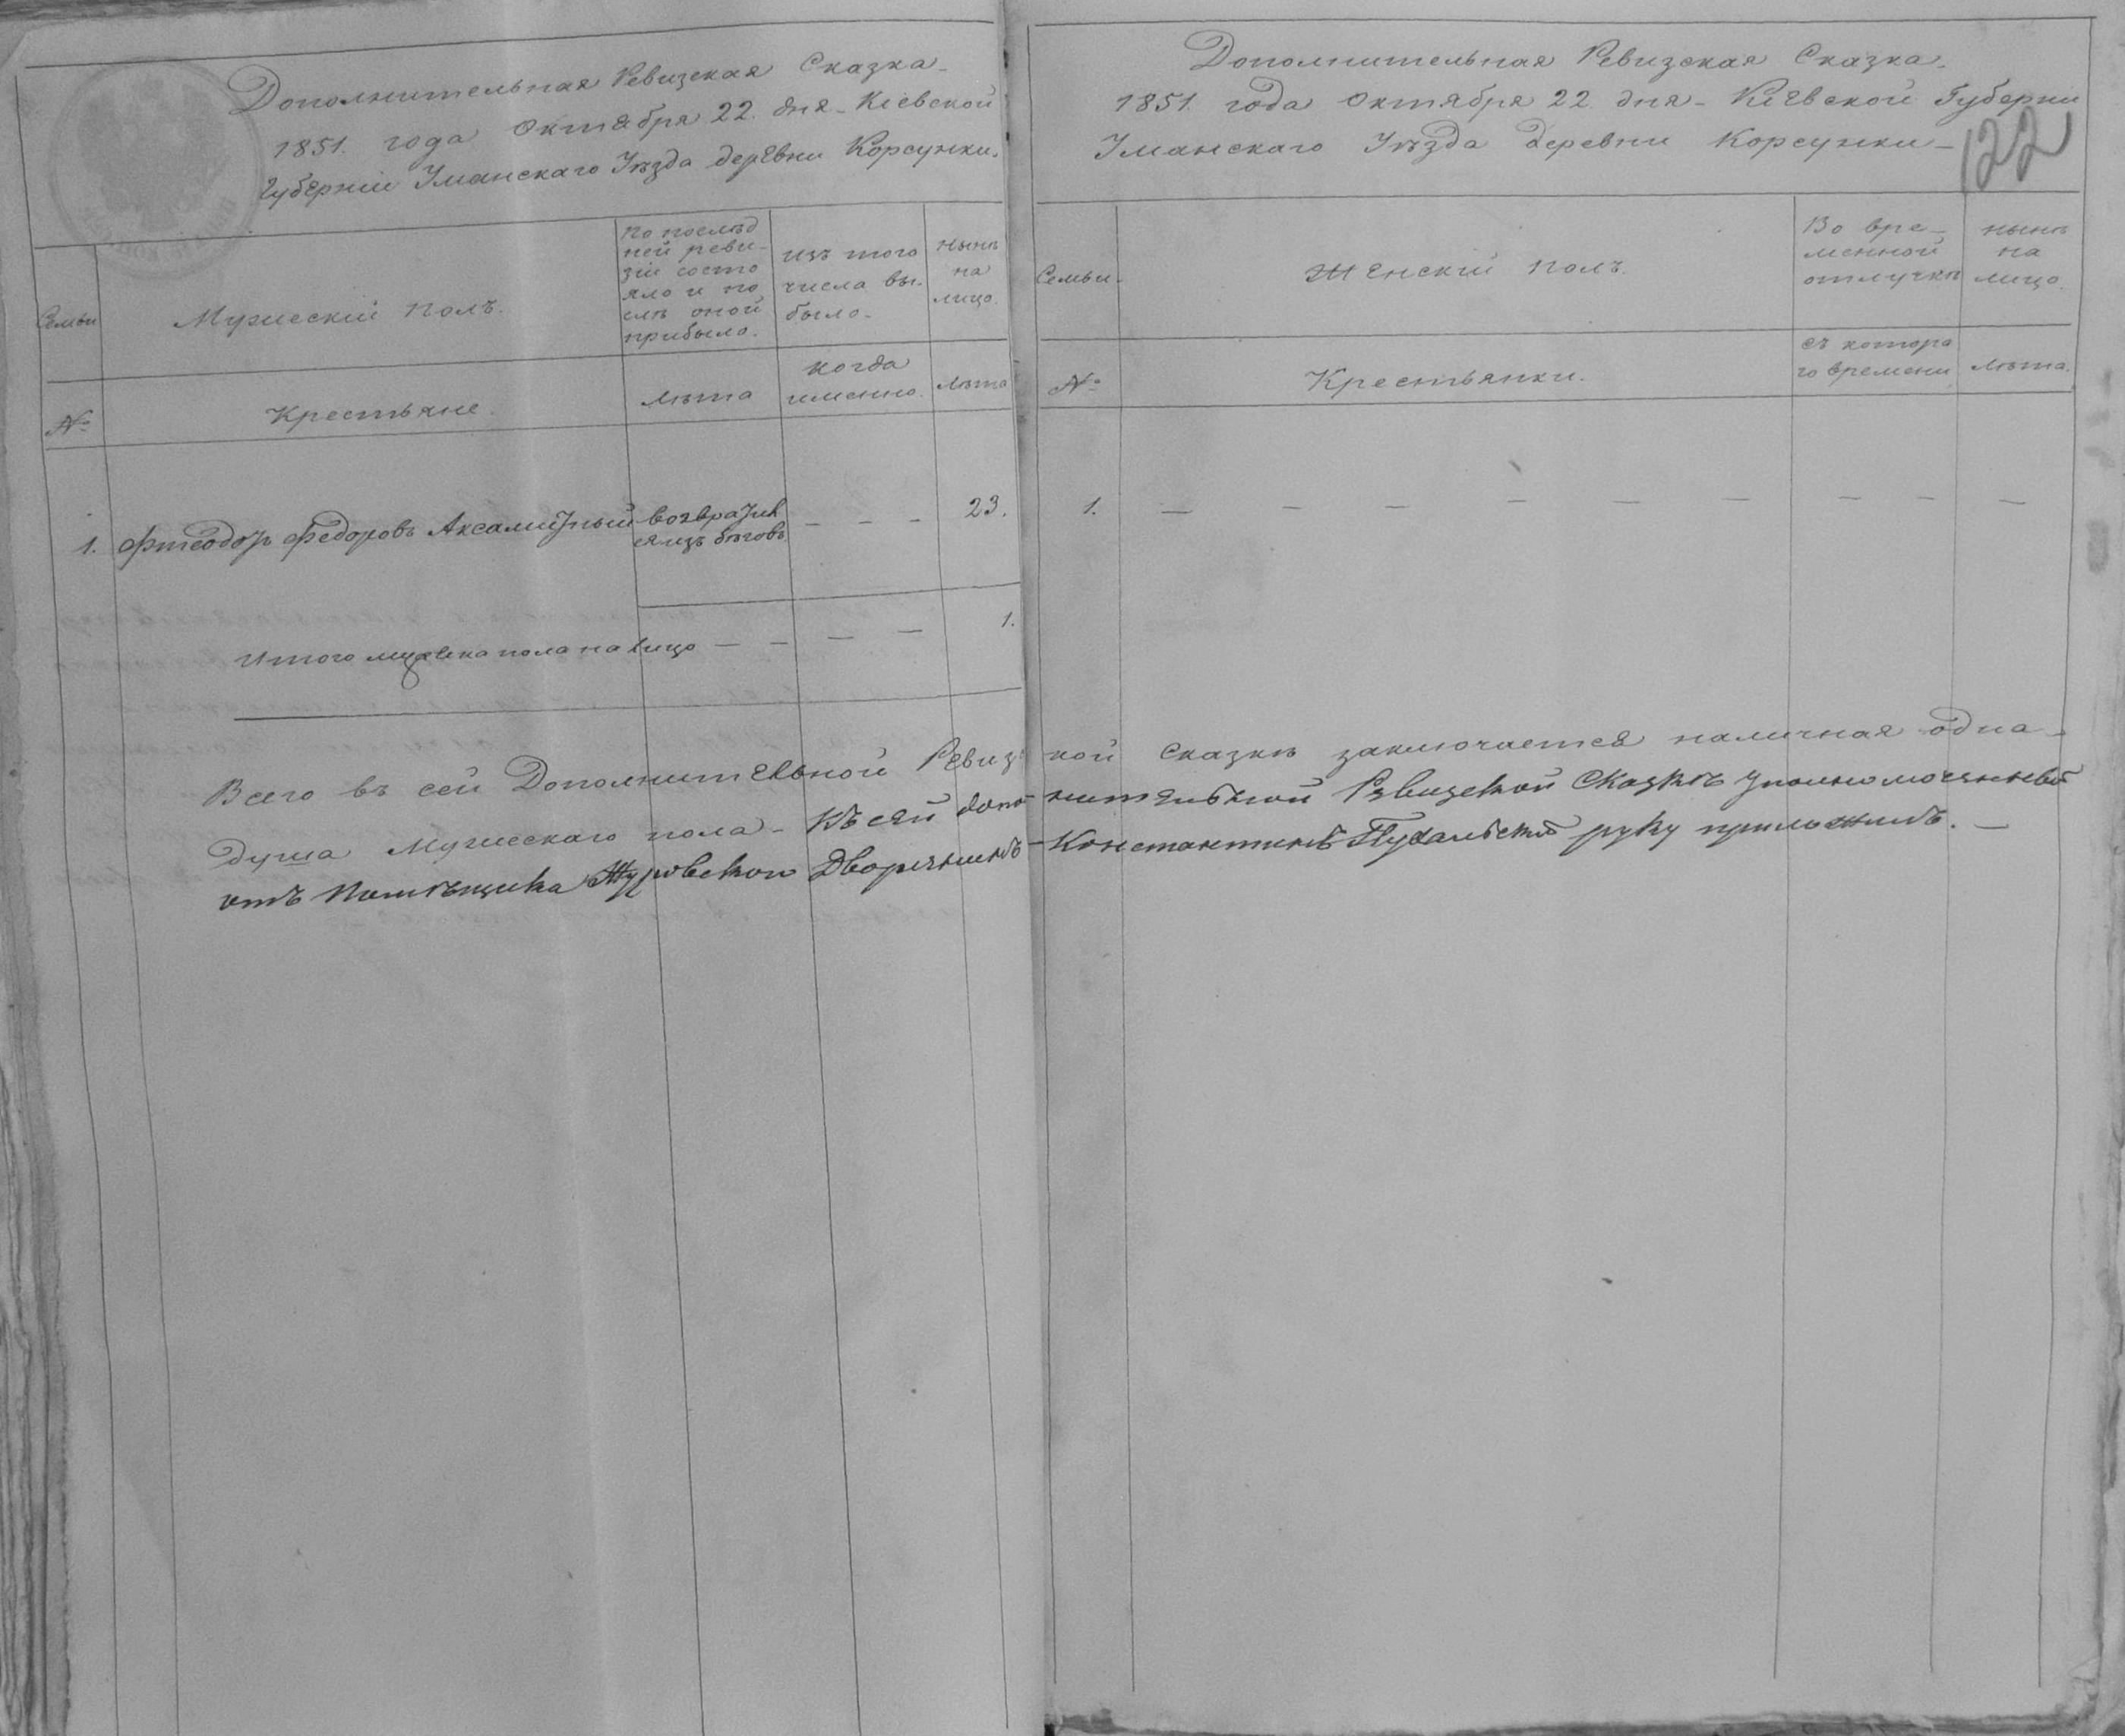 Дополнительная Ревизская Сказка
1851. года Октября 22. дня - Кіевской
Губерніи Уманскаго Уѣзда деревни Корсунки.
Семьи
Мужескій полъ.
по послѣд
ней реви-
зіи состо
яло и по
слѣ оной
прибыло.
изъ того
числа вы-
было.
нынѣ
на
лицо.
№
Крестьяне.
лѣта
когда
именно.
лѣта
1. Фтеодоръ Федоровъ Аксамитный
возврати
ся изъ бѣговъ
— — —
23.
Итого мужеска пола на лицо — — — —
1.
Дополнительная Ревизская Сказка.
1851. года Октября 22. дня - Кіевской Губерни
Уманскаго Уѣзда деревни Корсунки —
122
Семьи.
Женскій полъ.
Во вре-
менной
отлучкѣ
нынѣ
на
лицо.
№
Крестьянки.
съ котора
го времени
лѣта.
1. — — — — — — — — —
Всего въ сей Дополнительной Ревизской Сказкѣ заключается наличная одна
душа Мужескаго пола - Къ сей дополнительной Ревизской Сказкѣ Уполномоченный
отъ Помѣщика Дворянинъ Константинъ руку приложилъ. —